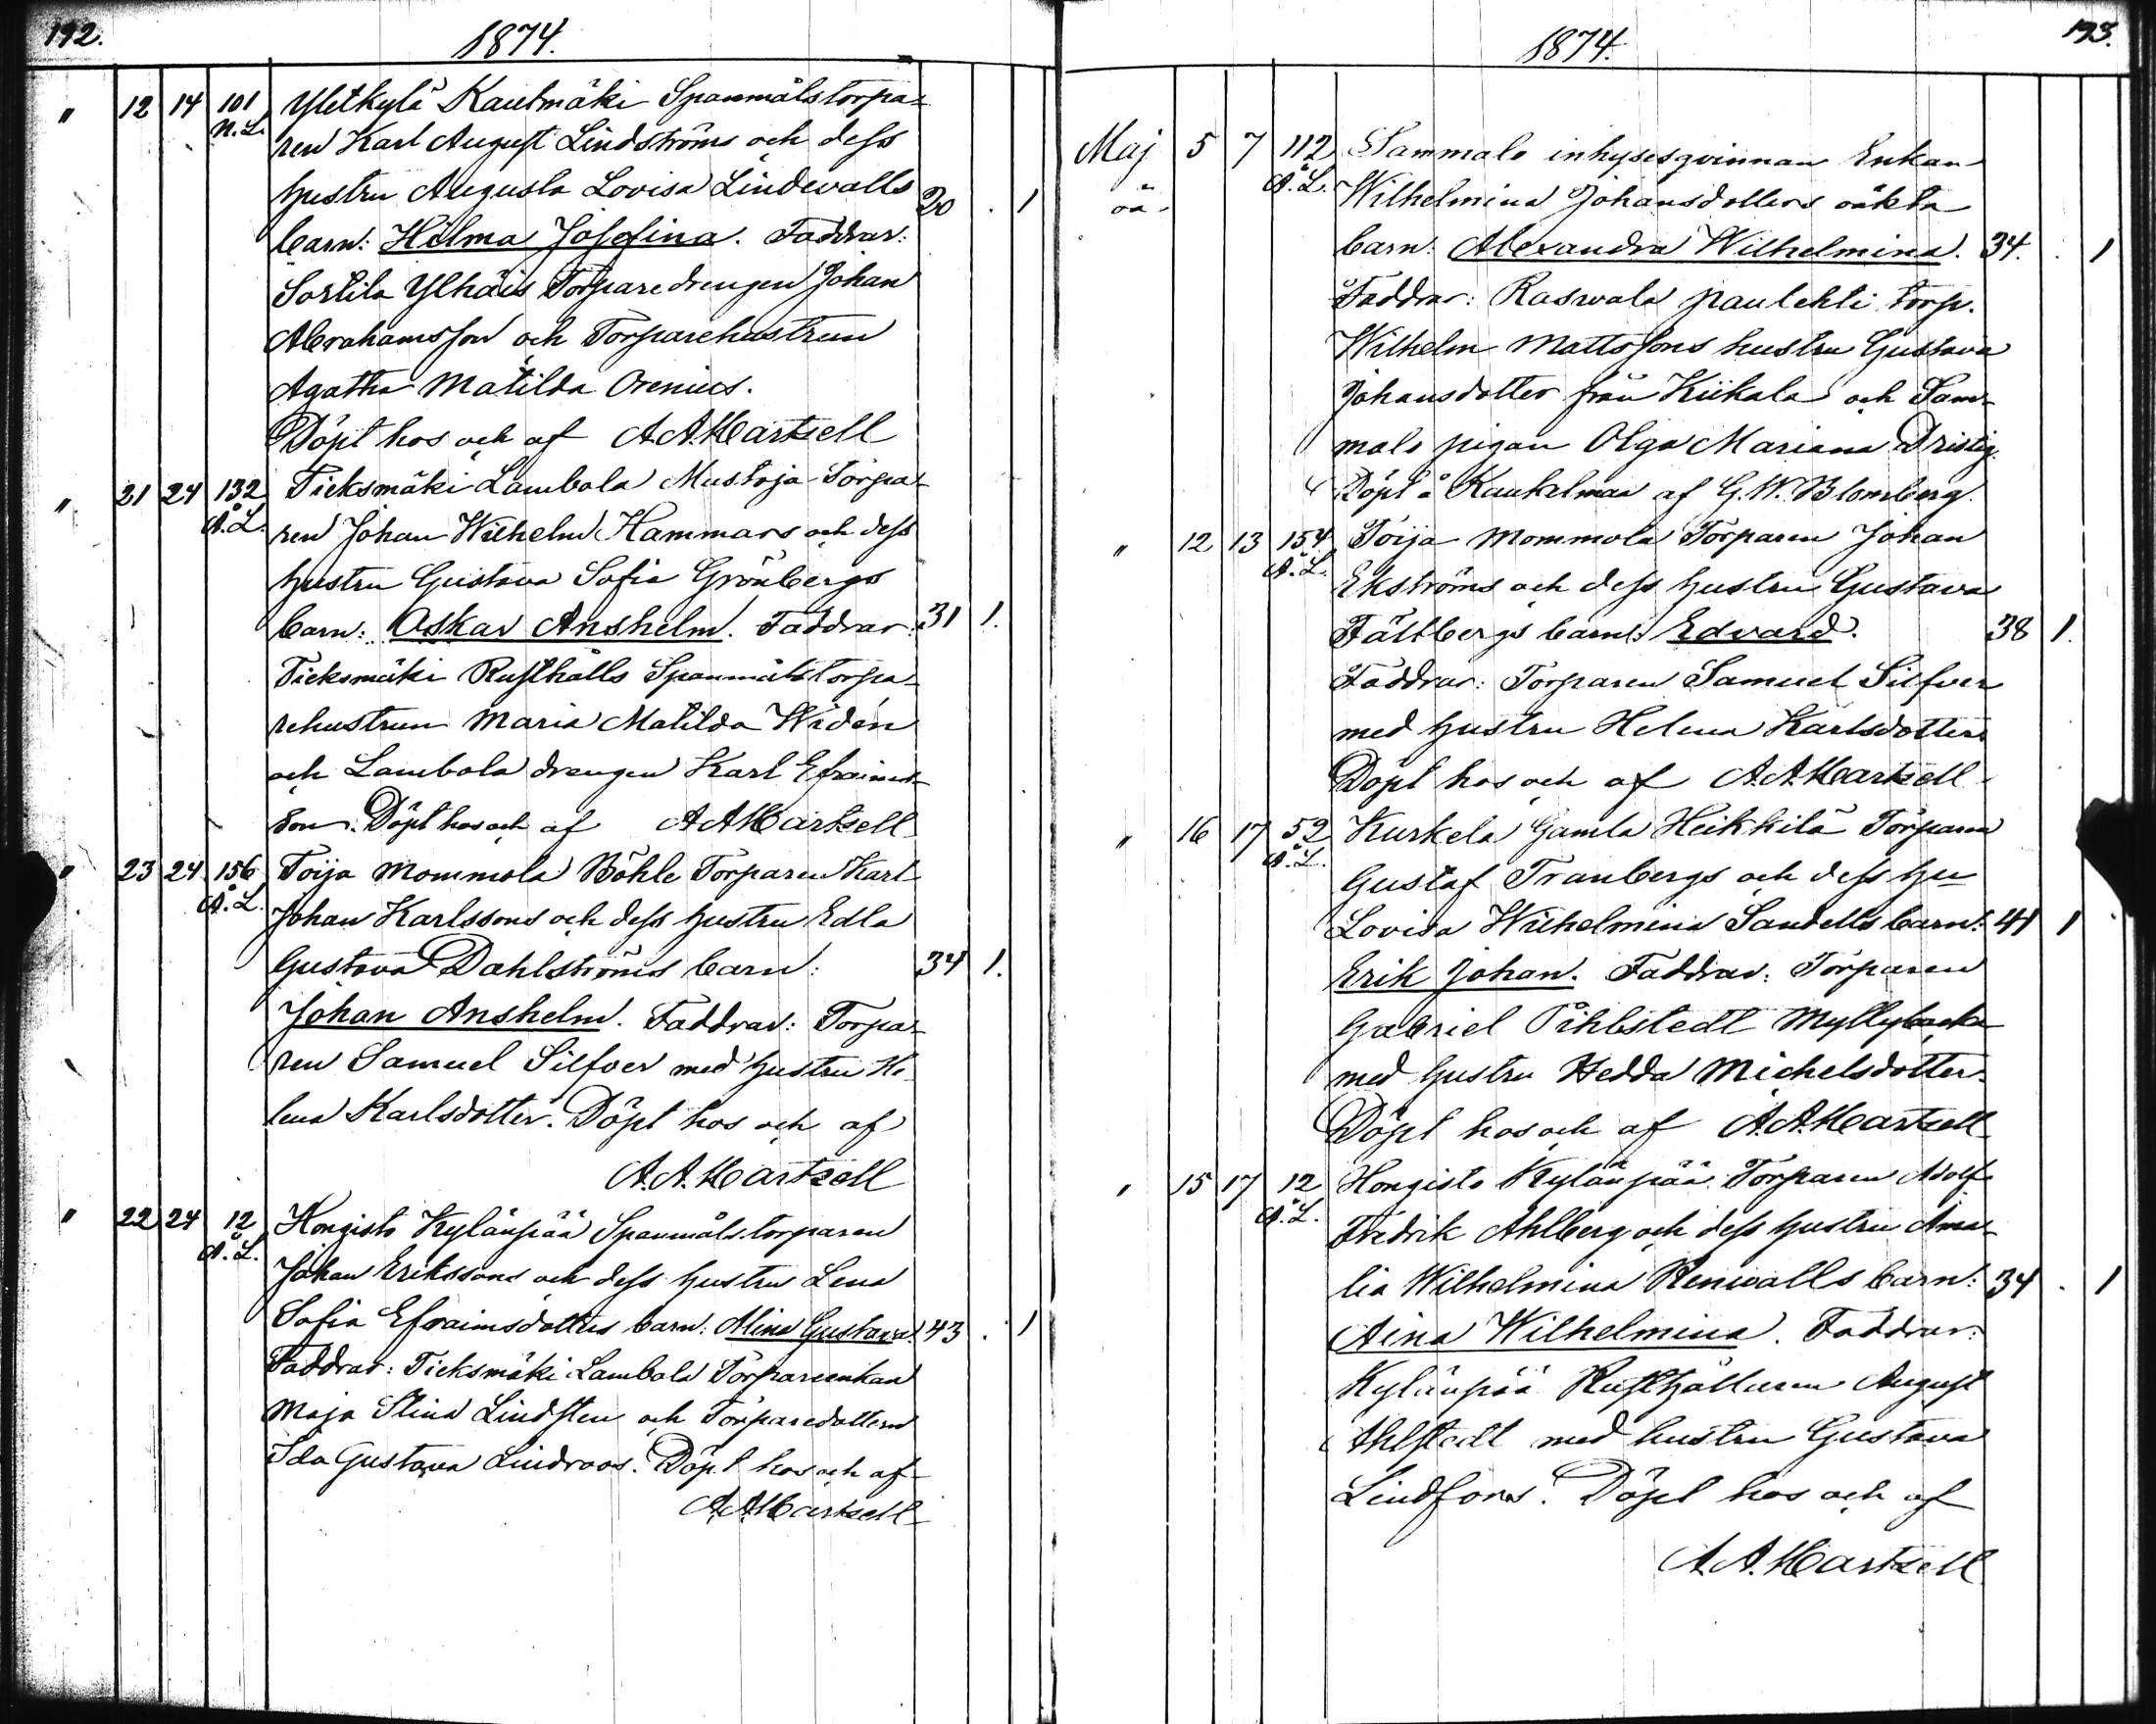 192.
1874.
" 12 14 101 Yletkylä Kautmäki Spanmålstorpa-
N.L. ren Karl August Lindströms och dess
hustru Augusta Lovisa Lindevalls 20 . 1
barn: Hilma Josefina. Faddrar:
Sortila Ylhäis Torparedrengen Johan
Abrahamsson och Torparehustrun
Agatha Matilda Orenius.
Döpt hos och af A.A. Hartzell
" 21 24 132 Ficksmäki Lambola Mustoja Torpa-
Å.L. ren Johan Wilhelm Hammars och dess
hustru Gustava Sofia Grönbergs
barn: Oskar Anshelm. Faddrar: 31 1.
Ficksmäki Rusthålls Spanmålstorpa-
rehustrun Maria Matilda Widén
och Lambola drengen Karl Efraims-
son. Döpt hos och af A.A. Hartzell
" 23 24 156 Toija Mommola Böhle Torparen Karl
Å.L. Johan Karlssons och dess hustru Edla
Gustava Dahlströms barn: 34 1.
Johan Anshelm. Faddrar: Torpa-
ren Samuel Silfver med hustru He-
lena Karlsdotter. Döpt hos och af
A.A. Hartzell
" 22 24 12 Hongisto Kylänpää Spanmålstorparen
Å.L. Johan Erikssons och dess hustru Lena
Sofia Efraimsdotters barn: Alina Gustava. 43 . 1
Faddrar: Ficksmäki Lambola Torpareenkan
Maja Stina Lindsten och Torparedottern
Ida Gustava Lindroos. Döpt hos och af
A.A. Hartzell
193.
1874.
Maj 5 7 112 Sammalo inhysesqvinnan Enkan
oä. Å.L. Wilhelmina Johansdotters oäkta
barn: Alexandra Wilhelmina. 34. . 1
Faddrar: Raswala Paulehti torp.
Wilhelm Mattssons hustru Gustava
Johansdotter från Kiikala och Sam-
malo pigan Olga Mariana Dristig.
Döpt å Kaukelmaa af G.W. Blomberg.
" 12 13 154 Toija Mommola Torparen Johan
Å.L. Ekströms och dess hustru Gustava
Fältbergs barn: Edvard. 38 1.
Faddrar: Torparen Samuel Silfver
med hustru Helena Karlsdotter.
Döpt hos och af A.A. Hartzell
" 16 17 52 Kurkela Gamla Heikkilä Torparen
Å.L. Gustaf Tranbergs och dess hu
Lovisa Wilhelmina Sandells barn: 41 1
Erik Johan. Faddrar: Torparen
Gabriel Pihlstedt Myllybacka
med hustru Hedda Michelsdotter.
Döpt hos och af A.A. Hartzell
" 15 17 12 Hongisto Kylänpää Torparen Adolf
Å.L. Fredrik Ahlberg och dess hustru Ama-
lia Wilhelmina Renwalls barn: 34 . 1
Aina Wilhelmina. Faddrar:
Kylänpää Rusthållaren August
Ahlstedt med hustru Gustava
Lindfors. Döpt hos och af
A.A. Hartzell